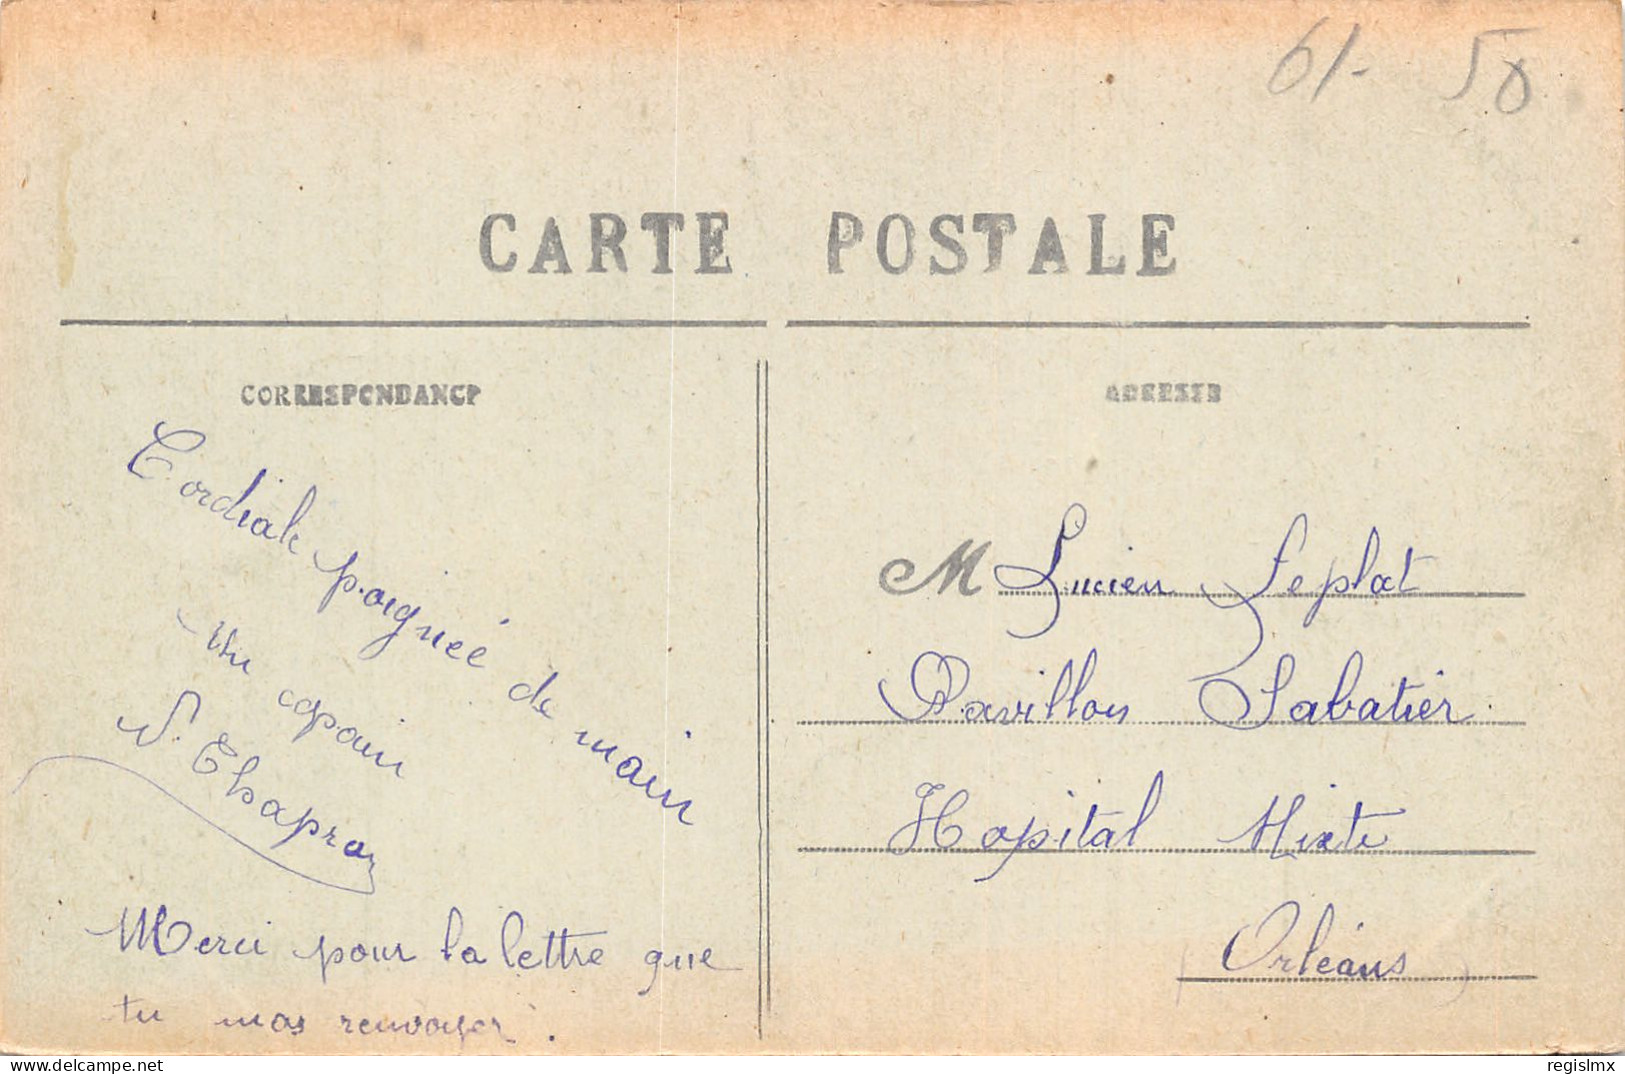 61- 50
CARTE POSTALE
CORRESPONDANCE
Cordiale poignée de main
un copain
Merci pour la lettre que
tu mas renvoyer.
ADRESSE
M Lucien Leplat
Pavillon Sabatier
Hopital Mixte
Orléans
delcampe.net
regislmx